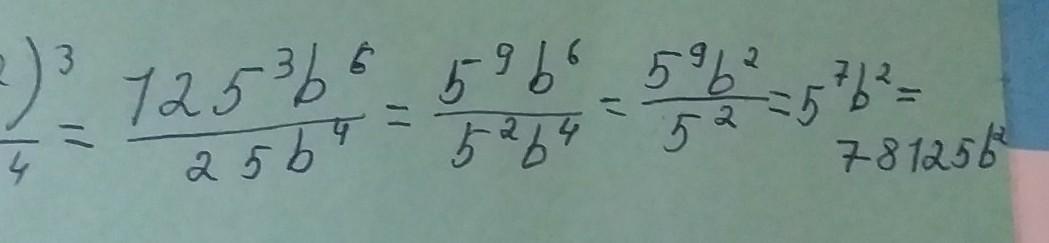 )³/4 = 125³b⁶/25b⁴ = 5⁹b⁶/5²b⁴ = 5⁹b²/5² = 5⁷b² =
78125b²